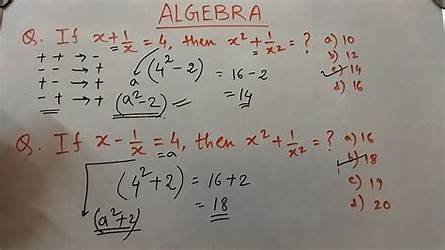 ALGEBRA
Q. If x + 1/x = 4, then x² + 1/x² = ? a) 10
b) 12
c) 14
d) 16
+ + → -
- - → +
+ - → +
- + → +
a
(4² - 2) = 16 - 2
(a² - 2) = 14
Q. If x - 1/x = 4, then x² + 1/x² = ? a) 16
= a
b) 18
c) 19
d) 20
(4² + 2) = 16 + 2
= 18
(a² + 2)